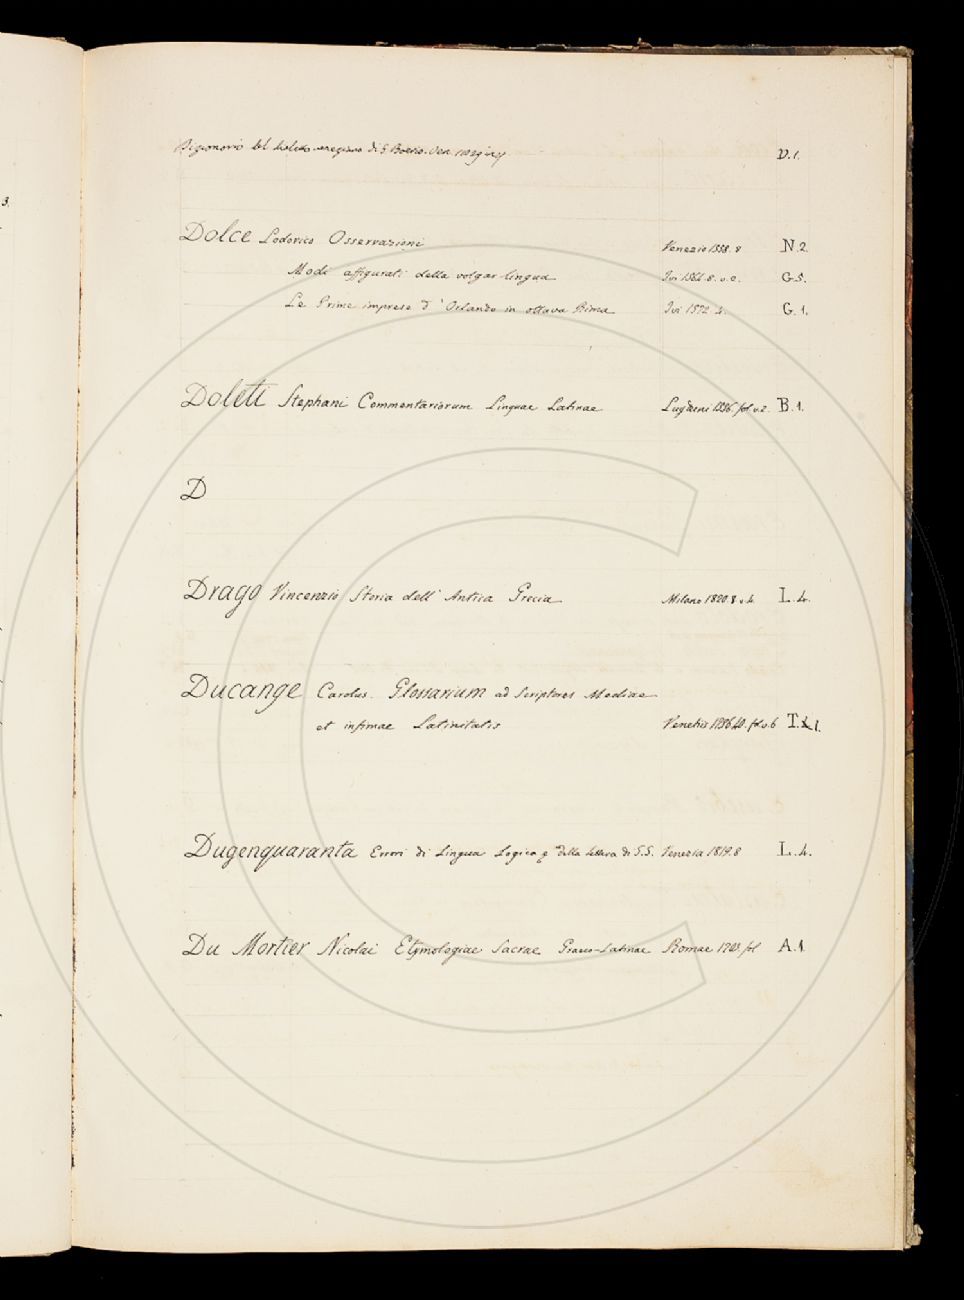 3.
Dizionario del dialetto veneziano di G. Boerio. Ven. D.1.
Dolce Lodovico Osservazioni Venezia 1558. 8 N.2.
Modi affigurati della volgar lingua Ivi 1564. 8. v.e. G.5.
Le Prime imprese d'Orlando in ottava Rima Ivi 1572. 4. G.1.
Doleti Stephani Commentariorum Linguae Latinae Lugduni 1536. fol. v.2. B.1.
D
Drago Vincenzio Storia dell' Antica Grecia Milano 1820. 8. v.4. L.4.
Ducange Carolus. Glossarium ad Scriptores Mediae
et infimae Latinitatis Venetiis 1736.40. fol. v.6 T.1.
Dugenquaranta Errori di Lingua Logica e della lettera di S.S. Venezia 1819. 8 L.4.
Du Mortier Nicolai Etymologiae Sacrae Graeco-Latinae Romae 1703. fol A.1.